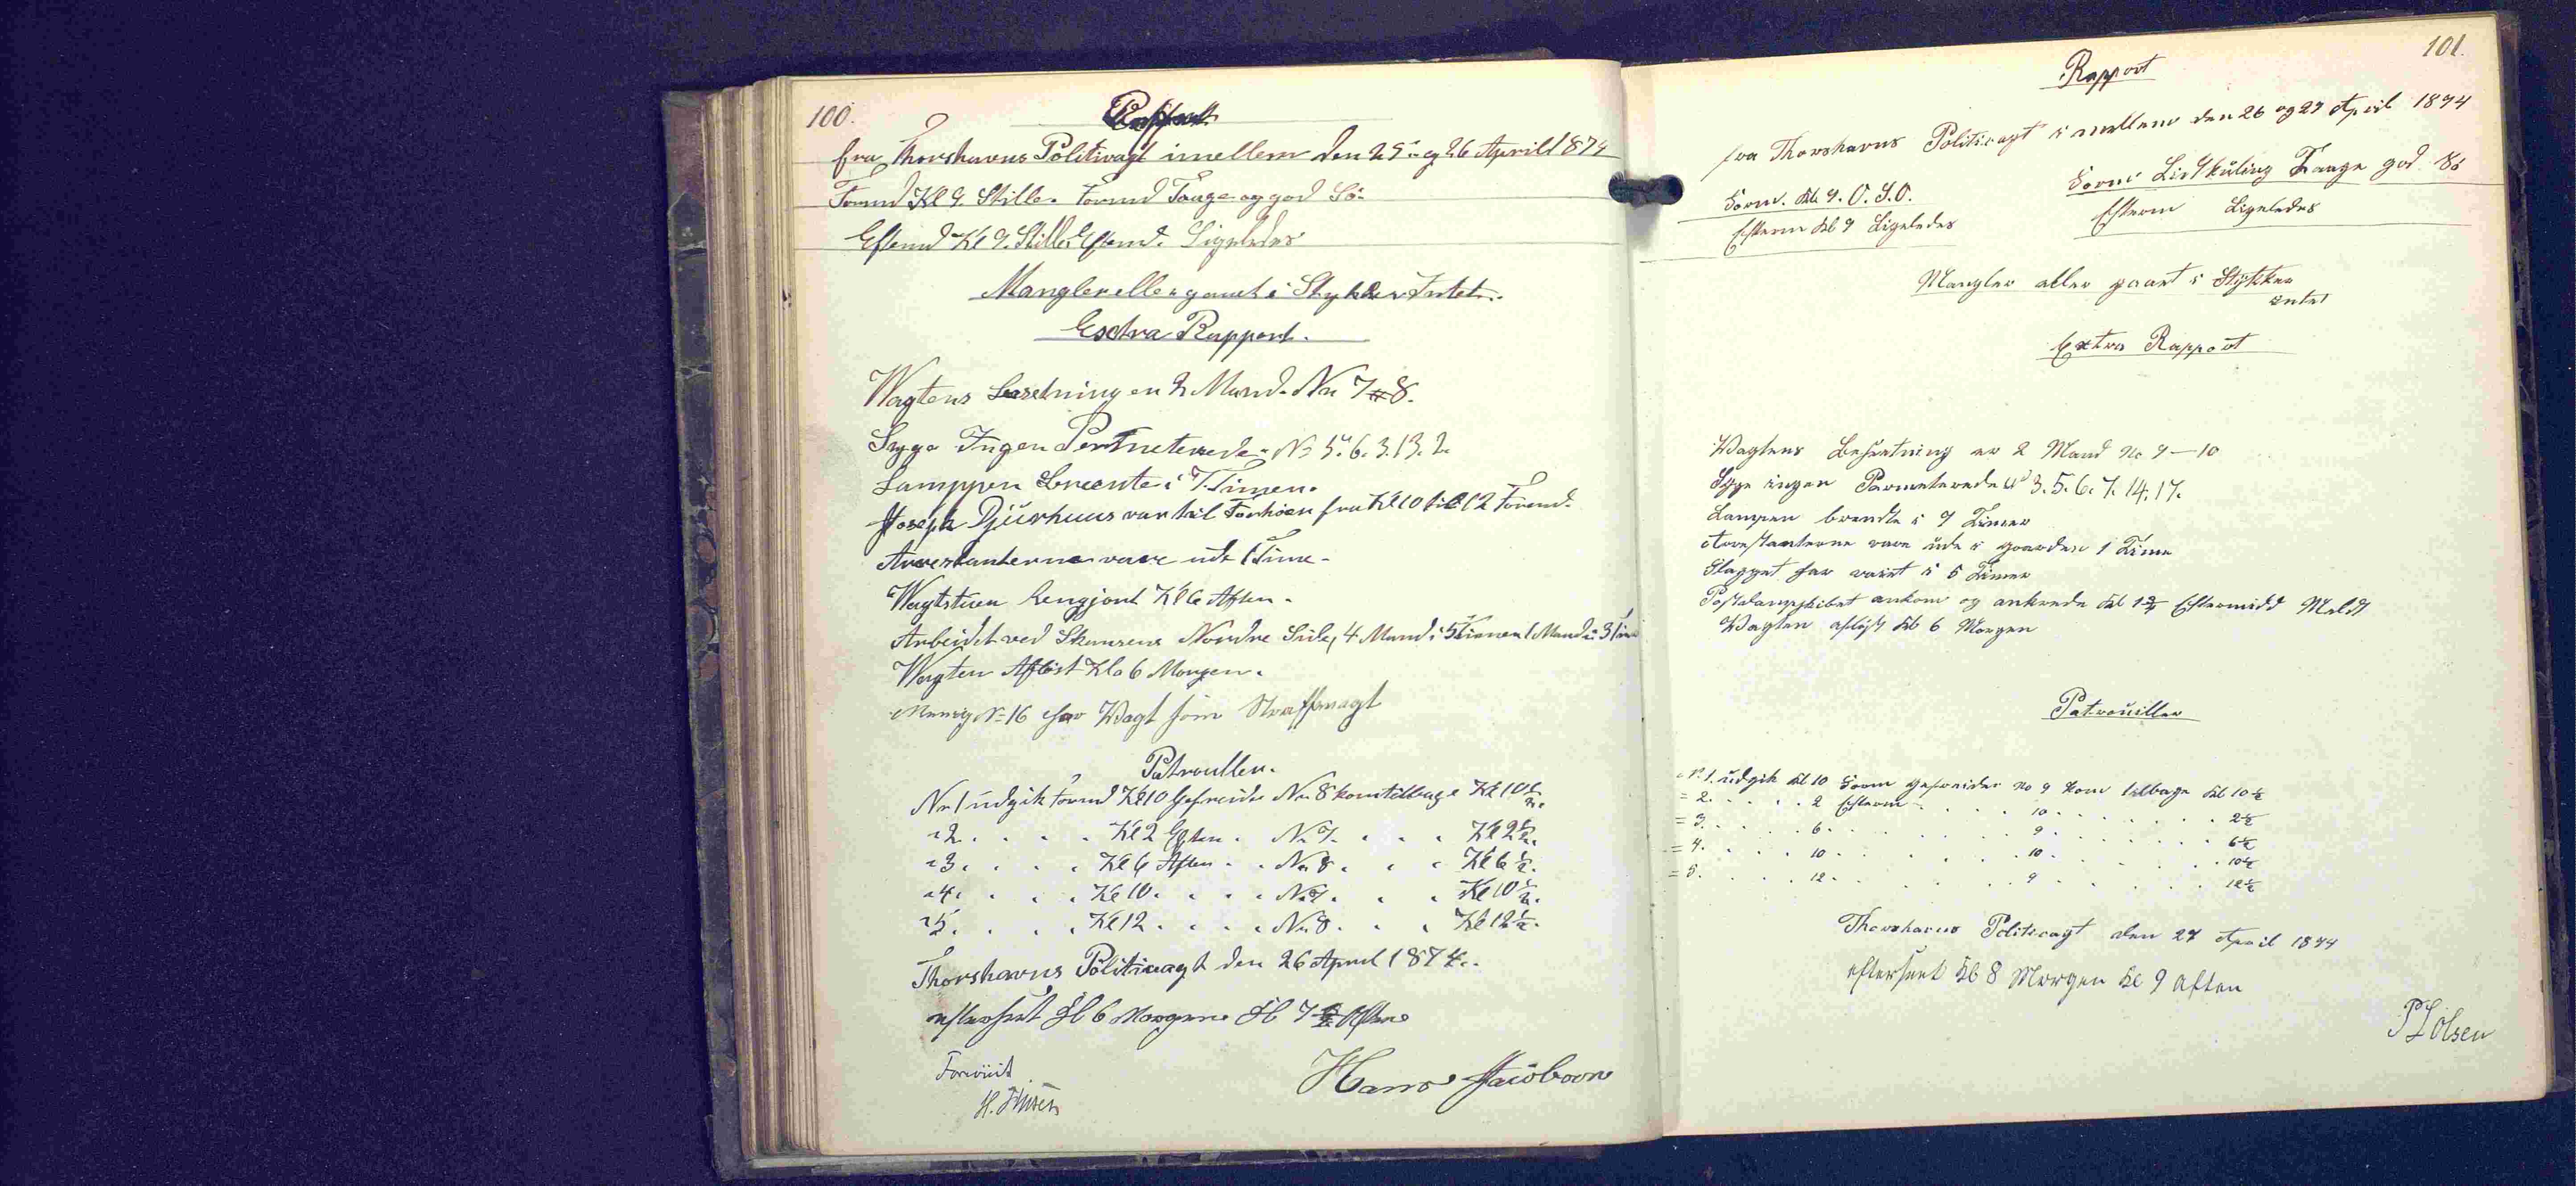 100.
Rapport
fra Thorshavns Politivagt imellem den 25 og 26 April 1874
Formd Kl 9. Stille. Formd Taage og god Sö.
Eftemd Kl 9. Stille Eftemd. Ligeledes
Mangler eller gaaet i Stykker Intet.
Esctra Rapport.
Wagtens Besetning er 2 Mand. No 7 & 8.
Syge Ingen Permeterede. No 5. 6. 3. 13. 2.
Lamppen Brente i 7. Timer.
Joseph Djurhuus var til Forhöer fra Kl 10 til 12 Formd.
Arrestanterne vare ude 1 Time.
Wagtstuen Rengjort Kl 6 Aften.
Arbeidet ved Skansens Nordre Side, 4 Mand i 5 Timer 1 Mand i 3 Time
Wagten Aflöst Klo 6 Morgen.
Menig No 16 har Wagt som Straffevagt
Patroullen.
No 1 udgik Formd Kl 10 Gefreider No 8 kom tilbage Kl 10½.
" 2. . . . Kl 2 Eften. . No 7. . . . Kl 2½.
" 3. . . . Kl 6 Aften . . No 8. . . . Kl 6½.
" 4. . . . Kl 10. . . . No 7. . . . Kl 10½.
" 5. . . . Kl 12. . . . No 8. . . . Kl 12½.
Thorshavns Politivagt den 26 April 1874.
efterseet Kl 6 Morgen Kl 7 Aften
Hans Jacobsen
101.
Rapport
fra Thorshavns Politivagt i mellem den 26 og 27 April 1874
Form. Kl 9. O. S. O. Form Listkuling Taage god Sö
Efterm Kl 9 Ligeledes Efterm Ligeledes
Mangler eller gaaet i Stykker
intet
Extra Rapport
Wagtens Besetning er 2 Mand No 9 — 10
Syge ingen Parmeterede No 3. 5. 6. 7. 14. 17.
Lampen brendte i 7 Timer
Arrestanterne vare ude i gaarden 1 Time
Flagget har vaiet i 5 Timer
Postdampskibet ankom og ankrede Kl 1¾ Eftermidd Meldt
Wagten aflöst Kl 6 Morgen
Patrouiller
No 1. udgik Kl 10 Form gefreider No 9 kom tilbage Kl 10½
= 2. . . . . 2 Efterm . . . . 10 . . . . . . 2½
= 3. . . . . 6 . . . . . . . 9 . . . . . . 6½
= 4. . . . . 10 . . . . . . . 10 . . . . . . 10½
= 5. . . . . 12 . . . . . . . 9 . . . . . . 12½
Thorshavns Politivagt den 27 April 1874
efterseet Kl 8 Morgen Kl 9 Aften
P L Olsen